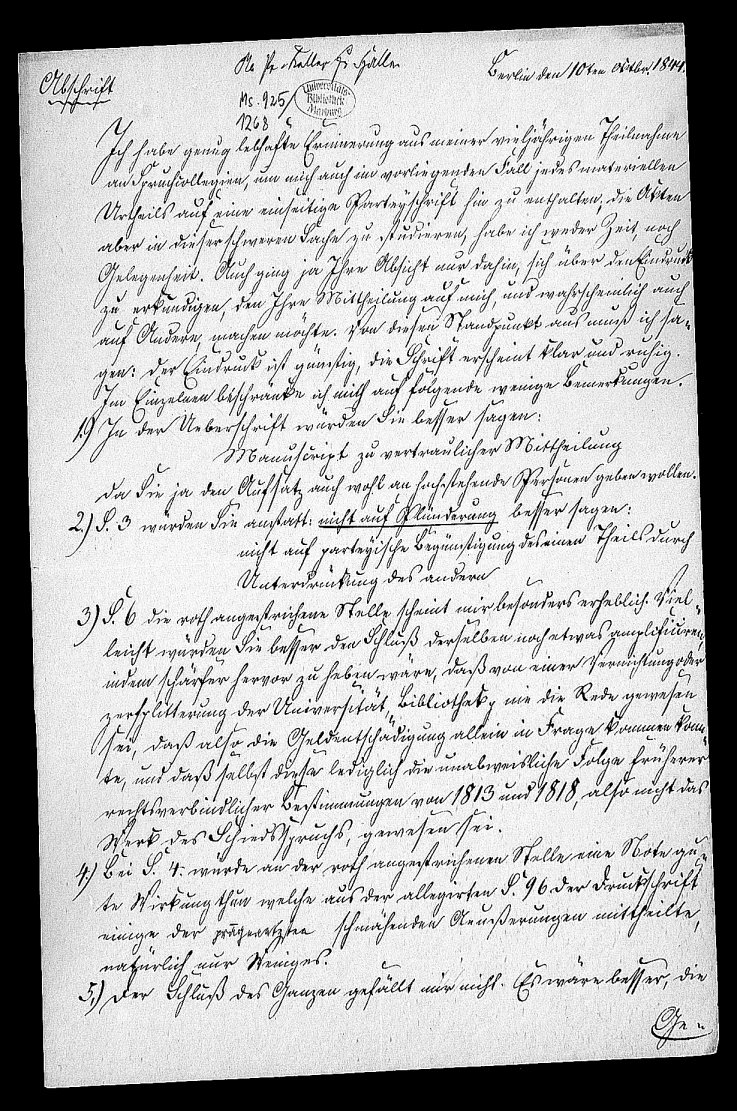 Abschrift
Berlin den 10ten Octbr. 1844.
Ms. 925/
1268
Universitäts-
Bibliothek
Marburg
Ich habe genug lebhafte Erinnerung aus meiner vieljährigen Theilnahme
an Spruchcollegien, um mich auch im vorliegenden Fall jedes materiellen
Urtheils auf eine einseitige Parteyschrift hin zu enthalten, die Akten
aber in dieser schweren Sache zu studieren, habe ich weder Zeit, noch
Gelegenheit. Auch ging ja Ihre Absicht nur dahin, sich über den Eindruck
zu erkundigen, den Ihre Mittheilung auf mich, und wahrscheinlich auch
auf Andere, machen möchte. Von diesem Standpunkt aus muß ich sa-
gen: der Eindruck ist günstig, die Schrift erscheint klar und ruhig.
Im Einzelnen beschränke ich mich auf folgende wenige Bemerkungen.
1.) In der Ueberschrift würden Sie besser sagen:
Manuscript zu vertraulicher Mittheilung
da Sie ja den Aufsatz auch wohl an hochstehende Personen geben wollen.
2.) S. 3 würden Sie anstatt: nicht auf Plünderung besser sagen:
nicht auf parteyische Begünstigung des einen Theils durch
Unterdrückung des andern
3) S. 6 die roth angestrichene Stelle scheint mir besonders erheblich. Viel-
leicht würden Sie besser den Schluß derselben noch etwas amplificiren,
indem schärfer hervor zu heben wäre, daß von einer Vernichtung oder
Zersplitterung der Universität, Bibliothek, nie die Rede gewesen
sei, daß also die Geldentschädigung allein in Frage kommen konn-
te, und daß selbst diese lediglich die unabweisliche Folge früherer
rechtsverbindlicher Bestimmungen von 1813 und 1818, also nicht das
Werk des Schiedsspruchs, gewesen sei.
4.) Bei S. 4. würde an der roth angestrichenen Stelle eine Note gu-
te Wirkung thun welche aus der allegirten S. 96 der Druckschrift
einige der schmähenden Aeußerungen mittheilte,
natürlich nur Weniges.
5.) Der Schluß des Ganzen gefällt mir nicht. Es wäre besser, die
Ge-